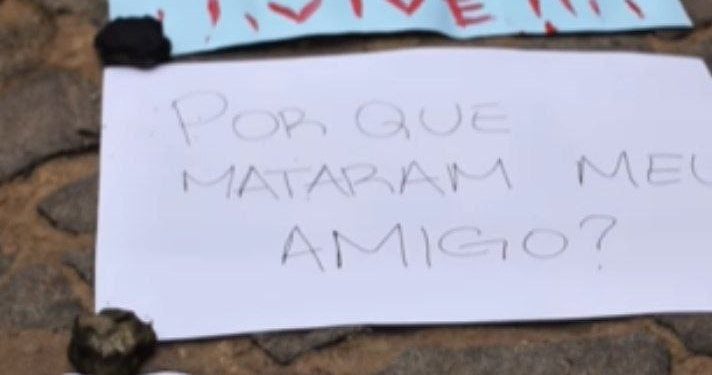 POR QUE
MATARAM MEU
AMIGO?